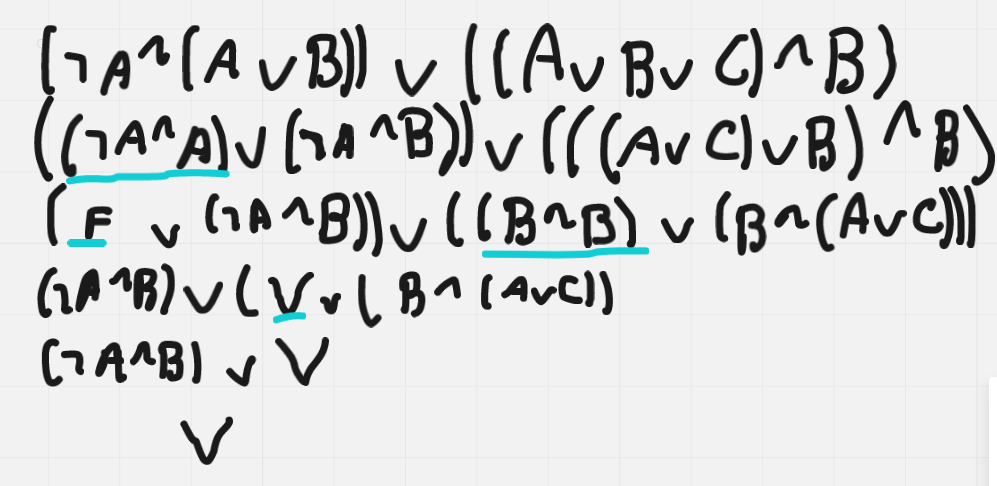 (¬A^(A∨B)) ∨ ((A∨B∨C)^B)
((¬A^A)∨(¬A^B)) ∨ (((A∨C)∨B)^B)
(F ∨ (¬A^B)) ∨ ((B^B) ∨ (B^(A∨C)))
(¬A^B) ∨ ( V ∨ ( B^(A∨C))
(¬A^B) ∨ V
V